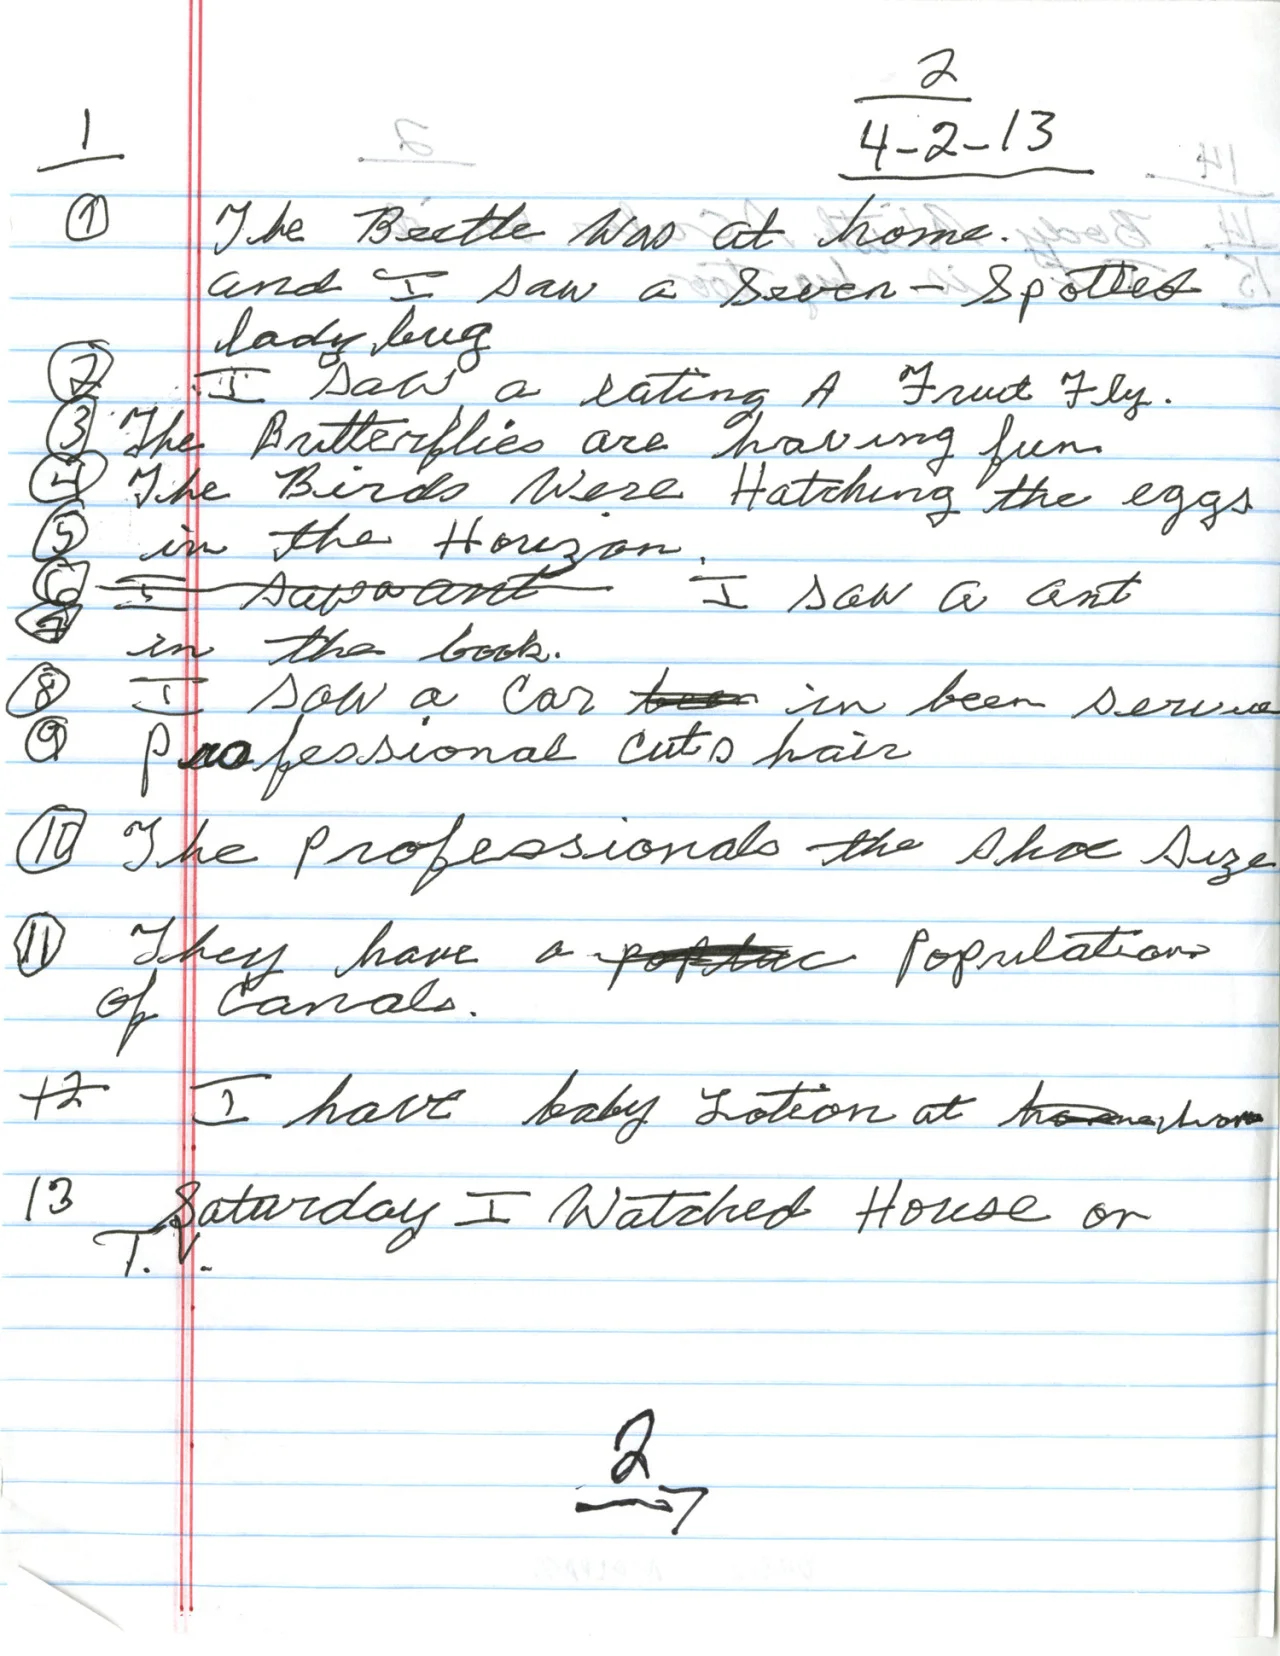 2
1
4-2-13
① The Beetle was at home.
and I saw a Seven-Spotted
lady bug
② I saw a eating A Fruit Fly.
③ The Butterflies are having fun.
④ The Birds Were Hatching the eggs
⑤ in the Horizon.
⑥ I saw a ant I saw a ant
⑦ in the book.
⑧ I saw a car been in been service
⑨ Professional cuts hair
⑩ The professionals the shoe size
⑪ They have a Population
of Canals.
12 I have baby Lotion at home
13 Saturday I Watched House on
T.V.
2